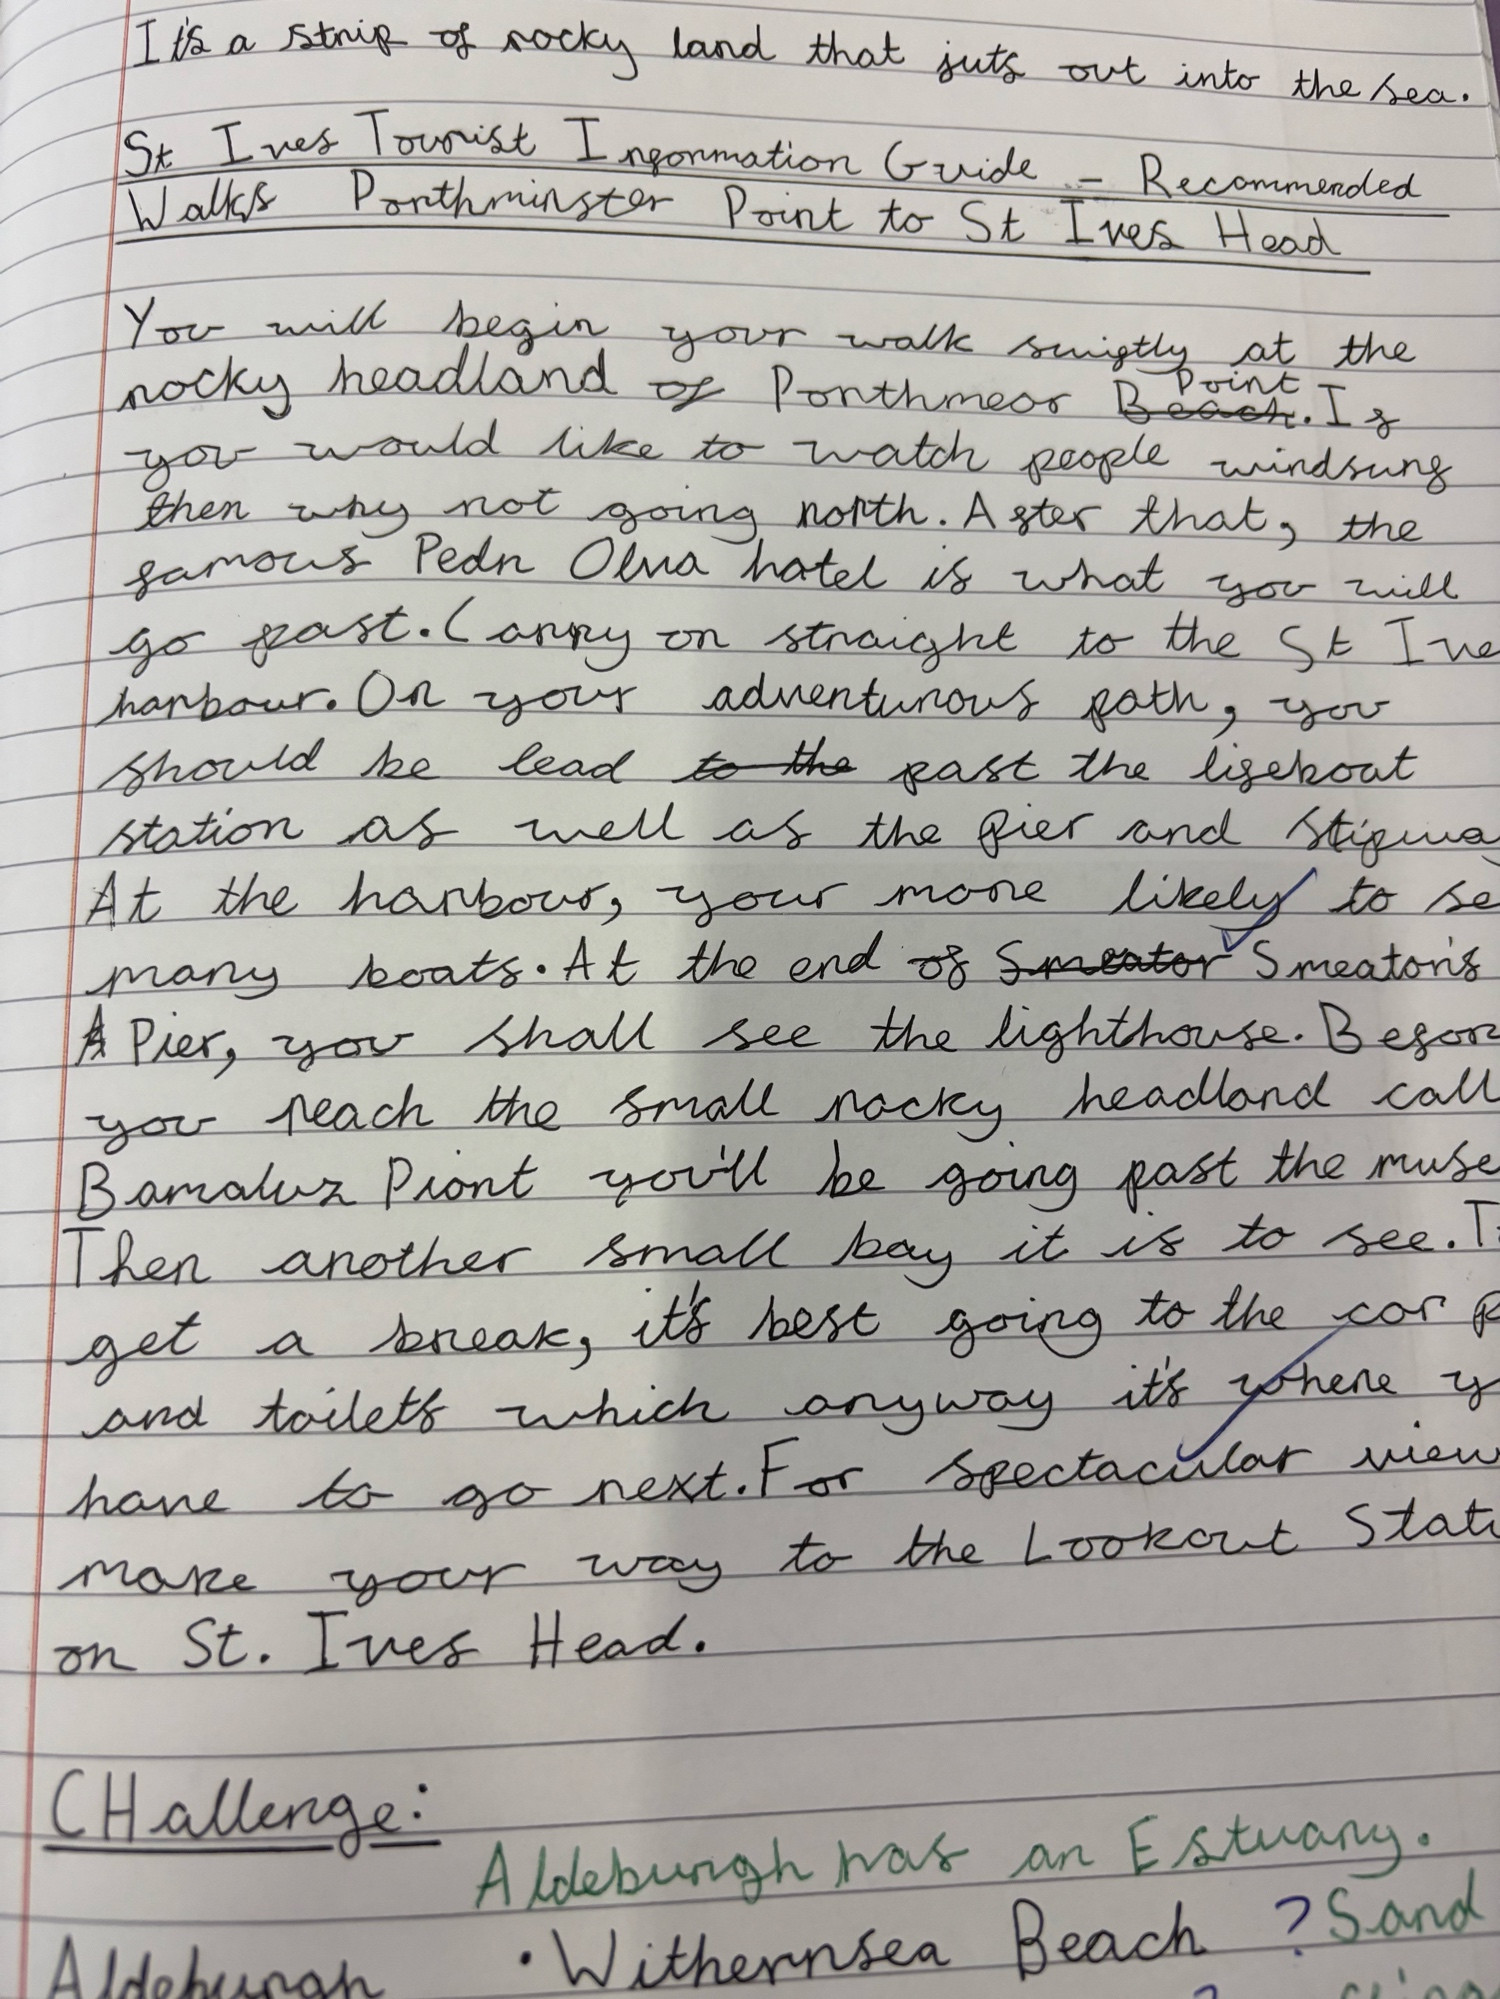 It's a strip of rocky land that juts out into the sea.
St Ives Tourist Information Guide - Recommended
Walks Porthminster Point to St Ives Head
You will begin your walk swiftly at the
rocky headland of Porthmeor Beach. Point If
you would like to watch people windsurf
then why not going north. After that, the
famous Pedn Olva hotel is what you will
go past. Carry on straight to the St Ive
harbour. On your adventurous path, you
should be lead to the past the lifeboat
station as well as the pier and slipway
At the harbour, your more likely to se
many boats. At the end of Smeator Smeaton's
A Pier, you shall see the lighthouse. Befor
you reach the small rocky headland call
Bamaluz Piont you'll be going past the muse
Then another small bay it is to see. T
get a break, it's best going to the car p
and toilets which anyway it's where y
have to go next. For spectacular view
make your way to the Lookout Stati
on St. Ives Head.
CHallenge:
Aldeburgh has an Estuary.
Aldeburgh • Withernsea Beach ? Sand
?